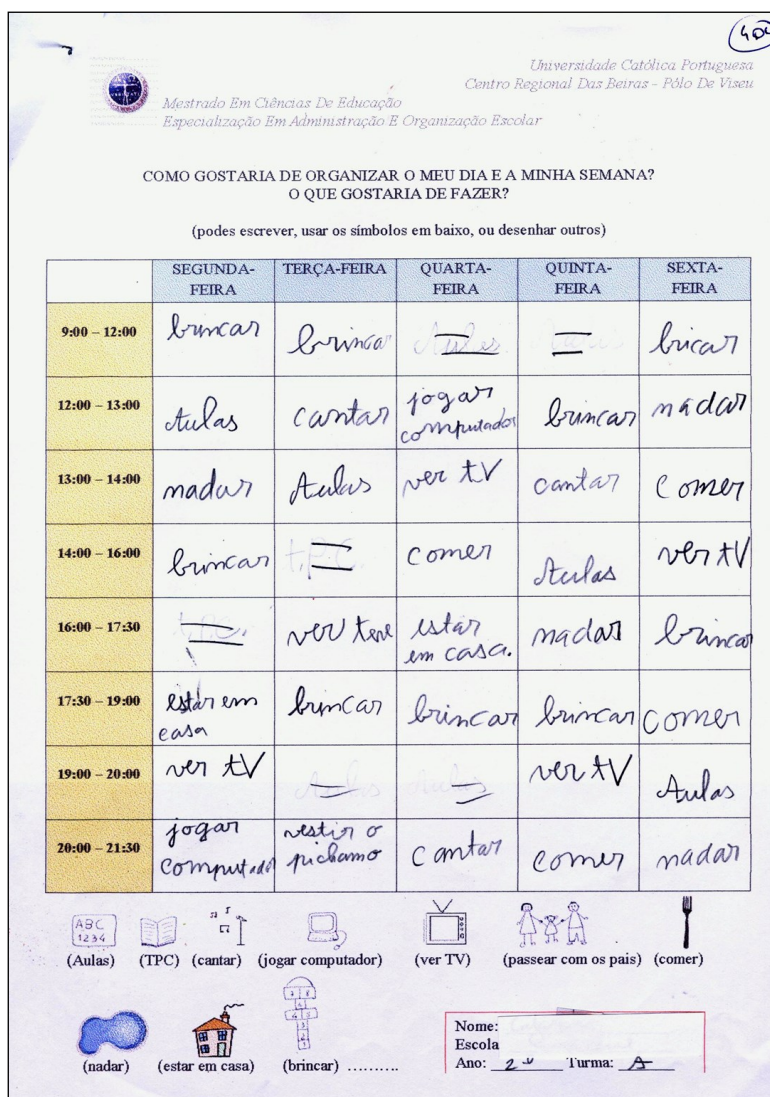 400
Universidade Católica Portuguesa
Centro Regional Das Beiras - Pólo De Viseu
Mestrado Em Ciências De Educação
Especialização Em Administração E Organização Escolar
COMO GOSTARIA DE ORGANIZAR O MEU DIA E A MINHA SEMANA?
O QUE GOSTARIA DE FAZER?
(podes escrever, usar os símbolos em baixo, ou desenhar outros)
SEGUNDA-FEIRA TERÇA-FEIRA QUARTA-FEIRA QUINTA-FEIRA SEXTA-FEIRA
9:00 – 12:00 brincar brincar Aulas bricar
12:00 – 13:00 Aulas cantar jogar computador brincar nadar
13:00 – 14:00 nadar Aulas ver tV cantar comer
14:00 – 16:00 brincar t.P.C. comer Aulas ver tV
16:00 – 17:30 t.P.C. ver teve estar em casa. nadar brincar
17:30 – 19:00 estar em casa brincar brincar brincar comer
19:00 – 20:00 ver tV Aulas Aulas ver tV Aulas
20:00 – 21:30 jogar computador vestir o pichamo cantar comer nadar
ABC
1234
(Aulas) (TPC) (cantar) (jogar computador) (ver TV) (passear com os pais) (comer)
(nadar) (estar em casa) (brincar) ..........
Nome:
Escola
Ano: 2º Turma: A